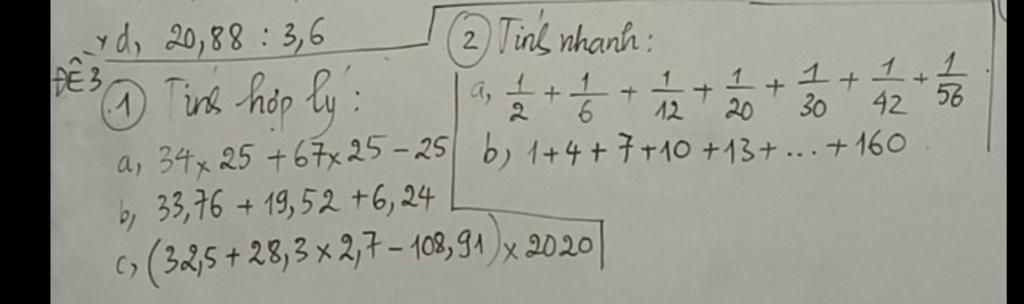 d, 20,88 : 3,6
ĐỀ 3
1 Tính hợp lý:
a, 34 x 25 + 67 x 25 - 25
b, 33,76 + 19,52 + 6,24
c, (32,5 + 28,3 x 2,7 - 108,91) x 2020
2 Tính nhanh:
a, 1/2 + 1/6 + 1/12 + 1/20 + 1/30 + 1/42 + 1/56
b, 1+4+7+10+13+...+160